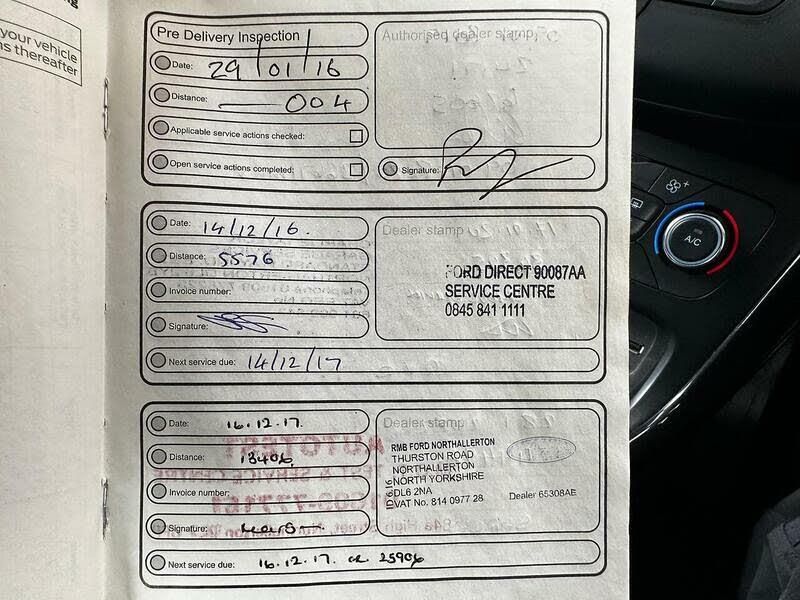 your vehicle
ns thereafter
Pre Delivery Inspection
Date: 29/01/16
Distance: 004
Applicable service actions checked:
Open service actions completed:
Authorised dealer stamp
Signature:
Date: 14/12/16.
Distance: 5576
Invoice number:
Signature:
Next service due: 14/12/17
Dealer stamp
FORD DIRECT 90087AA
SERVICE CENTRE
0845 841 1111
Date: 16.12.17.
Distance: 13406
Invoice number:
Signature:
Next service due: 16.12.17. or 25906
Dealer stamp
RMB FORD NORTHALLERTON
THURSTON ROAD
NORTHALLERTON
NORTH YORKSHIRE
DL6 2NA
VAT No. 814 0977 28
Dealer 65308AE
A/C